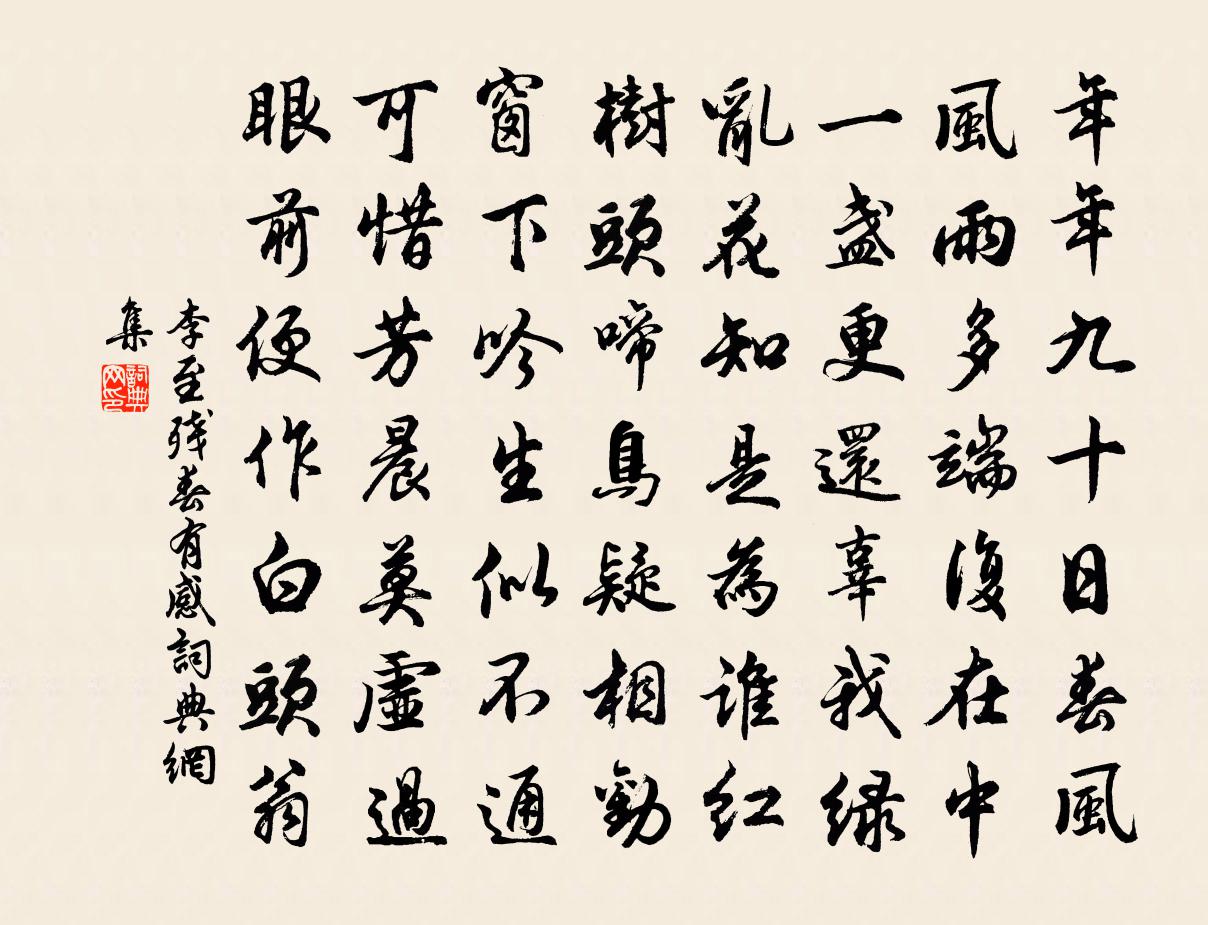 年年九十日春風
風雨多端復在中
一盞更還辜我綠
亂花知是為誰紅
樹頭啼鳥疑相勸
窗下吟生似不通
可惜芳晨莫虛過
眼前便作白頭翁
李至殘春有感詞典網
集
詞典网印